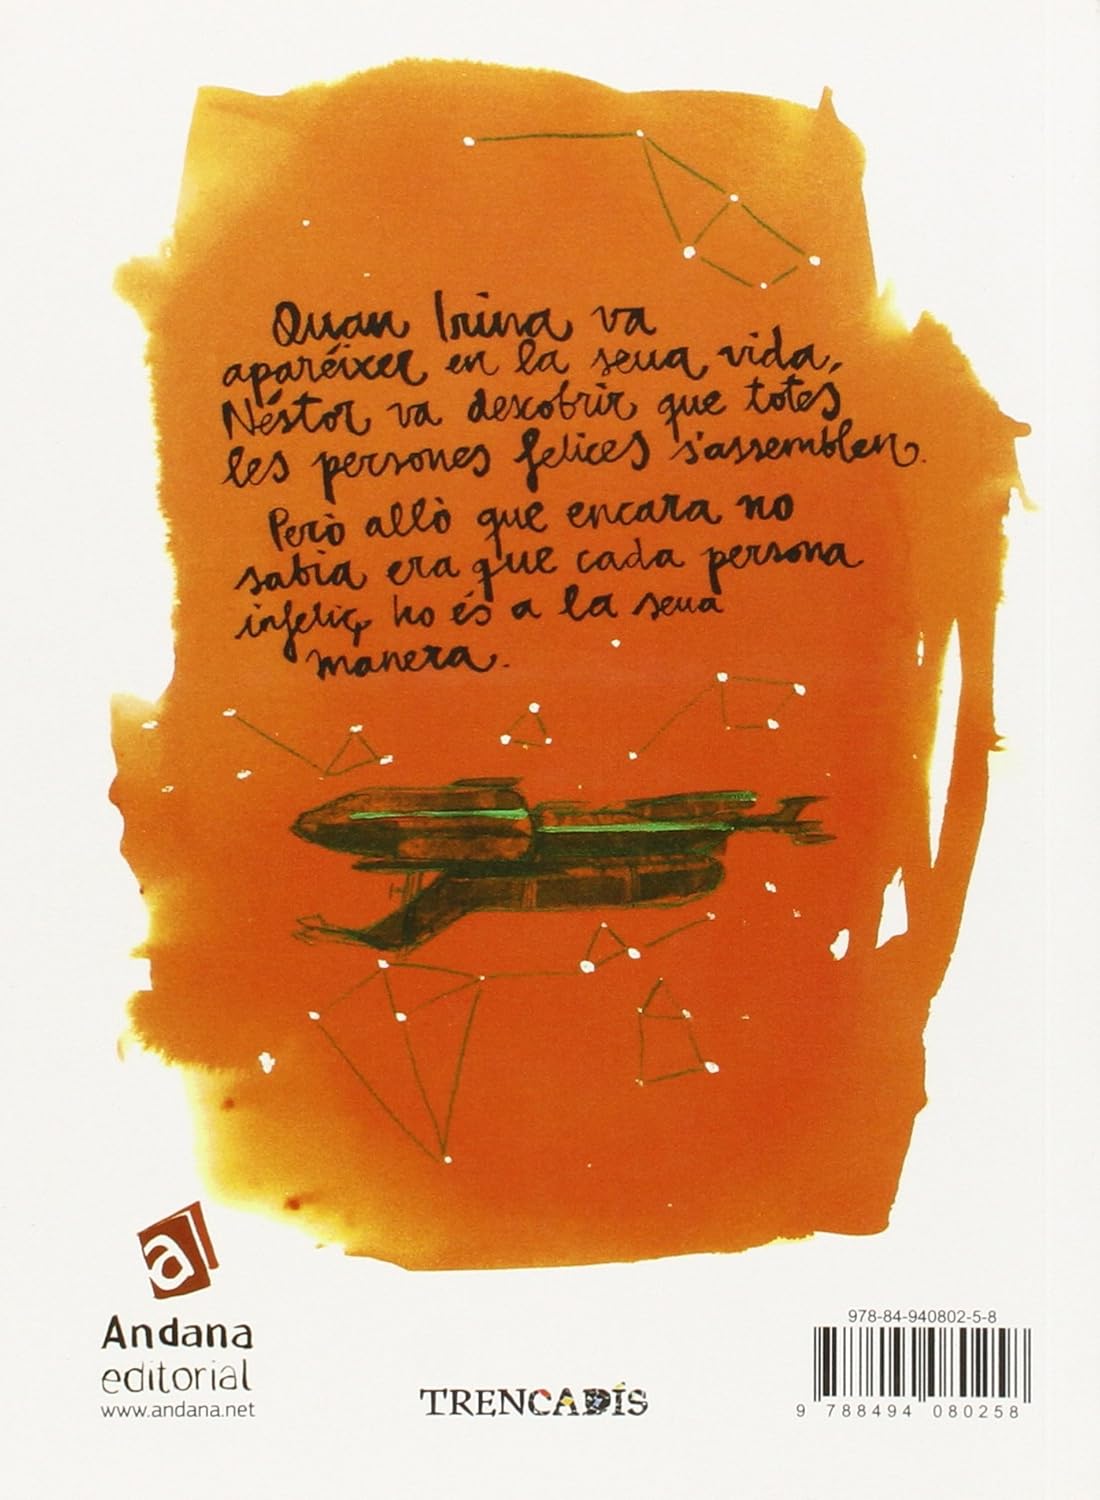 Quan Irina va
aparéixer en la seua vida,
Néstor va descobrir que totes
les persones felices s'assemblen.
Però allò que encara no
sabia era que cada persona
infeliç ho és a la seua
manera.
a
Andana
editorial
www.andana.net
TRENCADÍS
978-84-940802-5-8
9 788494 080258